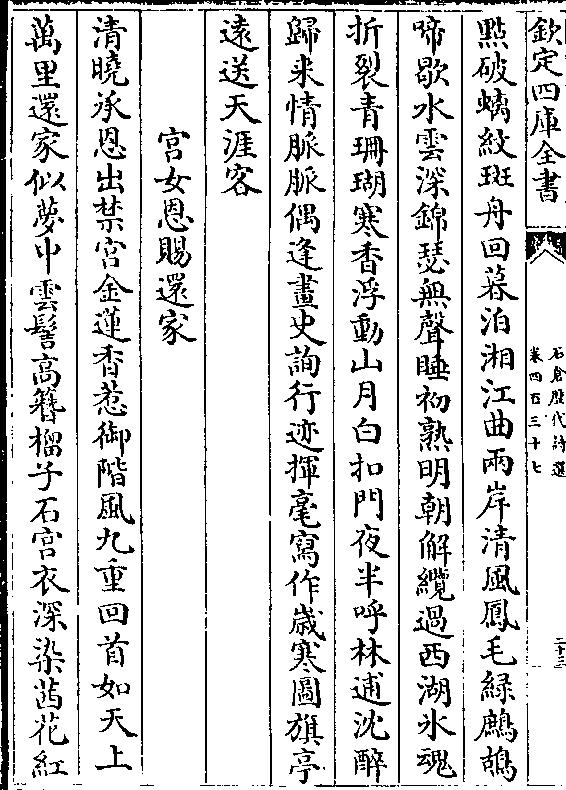 欽定四庫全書
石倉歷代詩選
卷四百三十七
二十三
點破螭紋斑舟回暮泊湘江曲兩岸清風鳳毛緑鷓鴣
啼歇水雲深錦瑟無聲睡初熟明朝解纜過西湖氷魂
折裂青珊瑚寒香浮動山月白扣門夜半呼林逋沈醉
歸來情脈脈偶逢畫史詢行迹揮毫寫作歲寒圖旗亭
遠送天涯客
宮女恩賜還家
清曉承恩出禁宮金蓮香惹御階風九重回首如天上
萬里還家似夢中雲髻高簪榴子石宮衣深染茜花紅